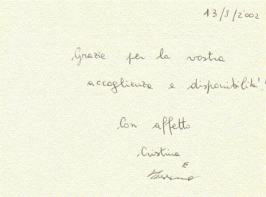 13/5/2002
Grazie per la vostra
accoglienza e disponibilità!
Con affetto
Cristina
E